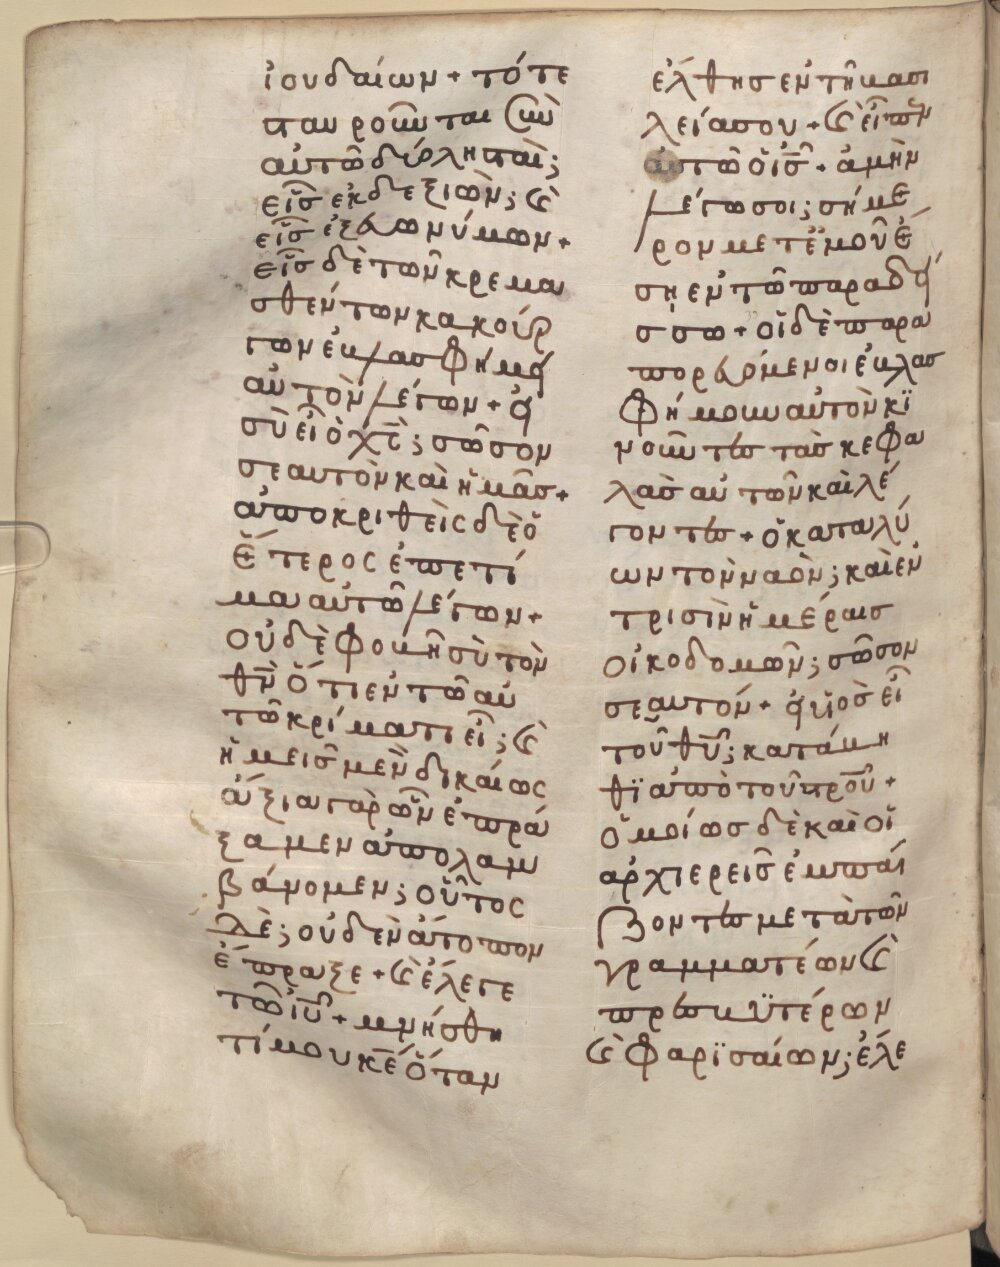 ἰουδαίων + τότε
σταυροῦνται σὺν
αὐτῶ δύο λησταὶ;
εἷς ἐκ δεξιῶν; καὶ
εἷς ἐξ εὐωνύμων +
εἷς δὲ τῶν κρεμα
σθέντων κακούρ
γων ἐβλασφήμει
αὐτὸν λέγων + εἰ
σὺ εἶ ὁ χς; σῶσον
σεαυτὸν καὶ ἡμᾶς +
ἀποκριθεὶς δὲ ὁ
ἕτερος ἐπετί
μα αὐτῶ λέγων +
οὐδὲ φοβῆ σὺ τὸν
θν ὅτι ἐν τῶ αὐ
τῶ κρίματι εἶ; καὶ
ἡμεῖς μὲν δικαίως
ἄξια γὰρ ὧν ἐπρά
ξαμεν ἀπολαμ
βάνομεν; οὗτος
δὲ; οὐδὲν ἄτοπον
ἔπραξε + καὶ ἔλεγε
τῶ ιυ + μνήσθη
τί μου κε ὅταν
ἔλθης ἐν τῆ βασι
λεία σου + καὶ εἶπεν
αὐτῶ ὁ ις + ἀμὴν
λέγω σοι; σήμε
ρον μετ ἐμοῦ ἔ
ση ἐν τῶ παραδεί
σω + οἱ δὲ παρα
πορευόμενοι ἐβλασ
φήμουν αὐτὸν κϊ
νοῦντες τὰς κεφα
λὰς αὐτῶν καὶ λέ
γοντες + ὁ καταλύ
ων τὸν ναὸν; καὶ ἐν
τρισὶν ἡμέραις
οἰκοδομῶν; σῶσον
σεαυτόν + εἰ υἱὸς εἶ
τοῦ θυ; κατάβη
θϊ ἀπὸ τοῦ στρου +
ὁμοίως δὲ καὶ οἱ
ἀρχιερεῖς ἐμπαί
ζοντες μετὰ τῶν
γραμματέων καὶ
πρεσβϋτέρων
καὶ φαρϊσαίων; ἔλε